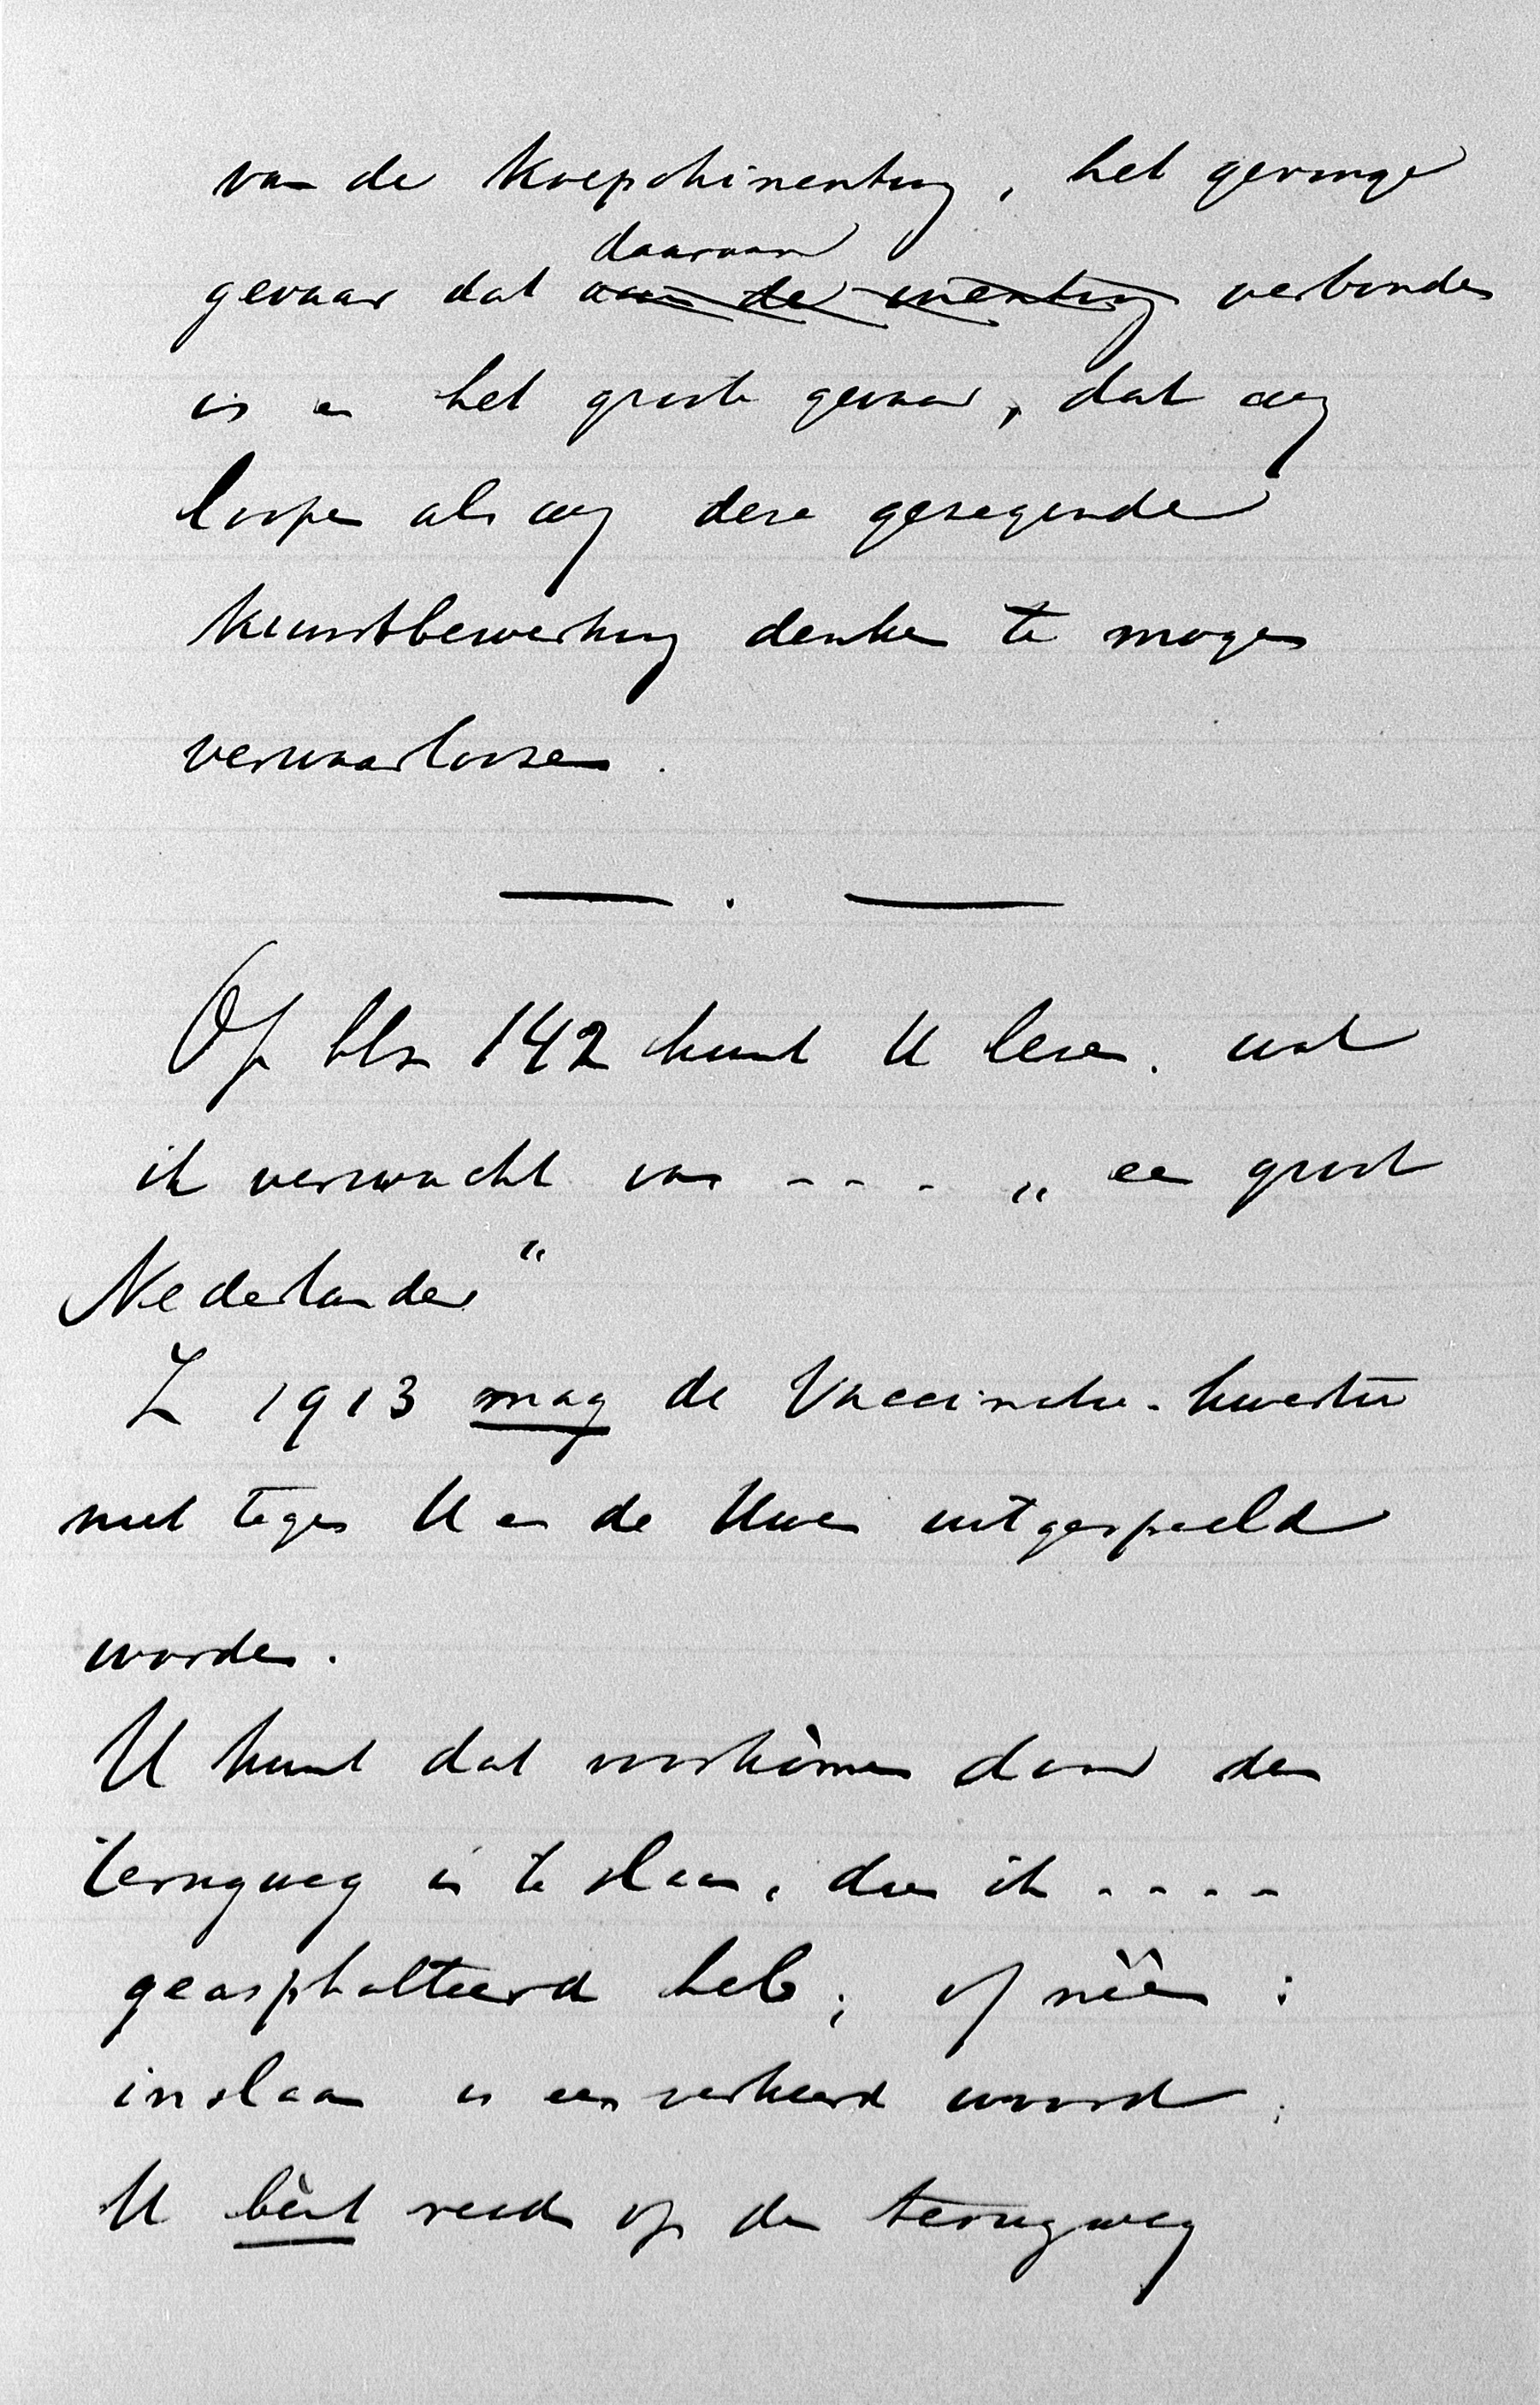 van de Koepokinenting, het geringe
daaraan
gevaar dat aan de inenting verbonden
is en het groote gevaar, dat wij
loopen als wij deze gezegende
kunstbewerking denken te mogen
verwaarloozen.
Op blz 142 kunt U lezen. wat
ik verwacht van - - - - „ een groot
Nederlander"
In 1913 mag de Vaccinatie-kwestie
niet tegen U en de Uwen uitgespeeld
worden.
U kunt dat voorkòmen door den
terugweg in te slaan, dien ik - - - -
geasphalteerd heb; of nèèn :
inslaan is een verkeerd woord;
U bènt reeds op den terugweg